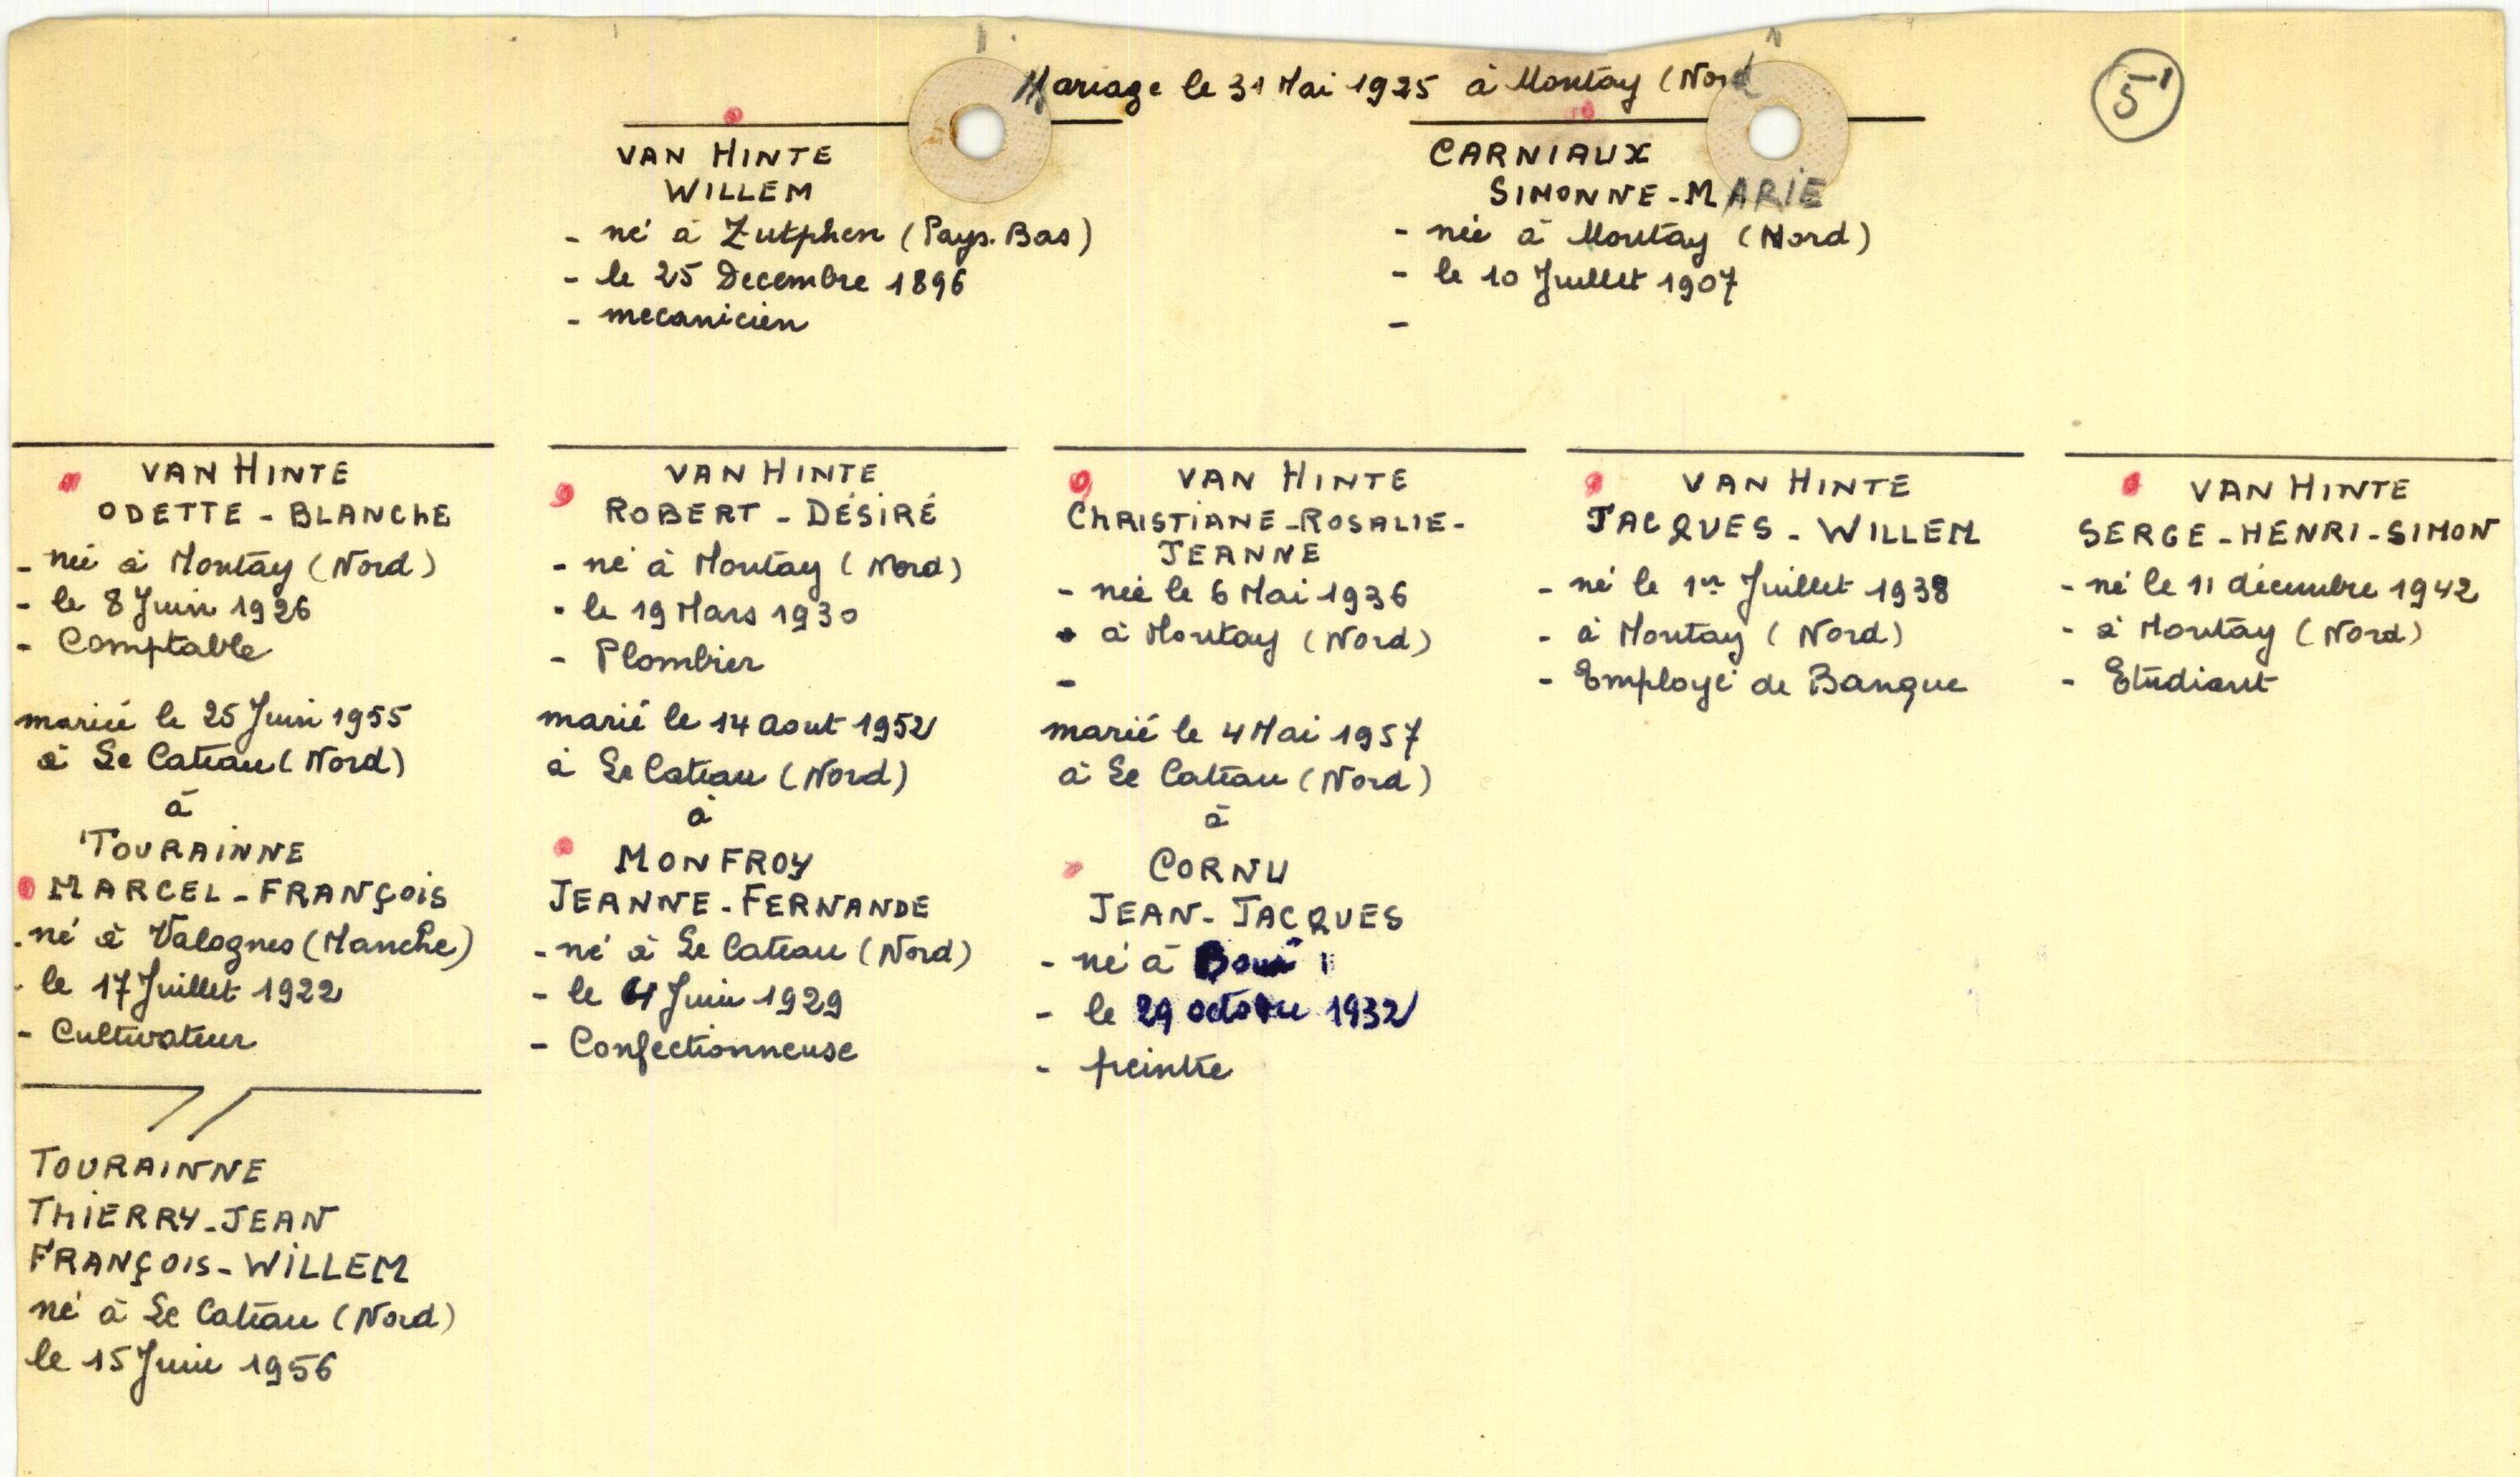 Mariage le 31 Mai 1925 à Montay (Nord
5'
VAN HINTE
WILLEM
- né à Zutphen (Pays.Bas)
- le 25 Decembre 1896
- mecanicien
CARNIAUX
SIMONNE-MARIE
- née à Montay (Nord)
- le 10 Juillet 1907
-
VAN HINTE
ODETTE - BLANCHE
- née à Montay (Nord)
- le 8 Juin 1926
- Comptable
mariée le 25 Juin 1955
à Le Cateau (Nord)
à
TOURAINNE
MARCEL - FRANÇOIS
- né à Valognes (Manche)
- le 17 Juillet 1922
- Cultivateur
TOURAINNE
THIERRY-JEAN
FRANÇOIS-WILLEM
né à Le Cateau (Nord)
le 15 Juin 1956
VAN HINTE
ROBERT - DÉSIRÉ
- né à Montay (Nord)
- le 19 Mars 1930
- Plombier
marié le 14 aout 1952
à Le Cateau (Nord)
à
MONFROY
JEANNE-FERNANDE
- né à Le Cateau (Nord)
- le Juin 1929
- Confectionneuse
VAN HINTE
CHRISTIANE-ROSALIE-
JEANNE
- née le 6 Mai 1936
- à Montay (Nord)
-
marié le 4 Mai 1957
à Le Cateau (Nord)
à
CORNU
JEAN-JACQUES
- né à
- le 29 octobre 1932
- peintre
VAN HINTE
JACQUES - WILLEM
- né le 1er Juillet 1938
- à Montay (Nord)
- Employé de Banque
VAN HINTE
SERGE-HENRI-SIMON
- né le 11 décembre 1942
- à Montay (Nord)
- Etudiant